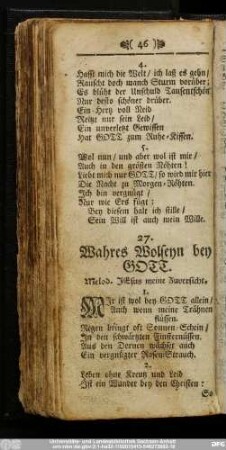 46
4.
Hasst mich die Welt/ ich lass es gehn/
Rauscht doch manch Sturm vorüber;
Es blüht der Unschuld Tausentschön
Nur desto schöner drüber.
Ein Hertz voll Neid
Reitzt nur sein Leid/
Ein unverletzt Gewissen
Hat GOTT zum Ruhe-Kissen.
5.
Wol nun/ und aber wol ist mir/
Auch in den größten Nöhten!
Liebt mich nur GOTT/ so wird mir hier
Die Nacht zu Morgen-Röhten.
Ich bin vergnügt/
Nur wie Ers fügt:
Bey diesem halt ich stille/
Sein Will ist auch mein Wille.
27.
Wahres Wolseyn bey
GOTT.
Melod. JEsus meine Zuversicht.
1.
MIr ist wol bey GOTT allein/
Auch wenn meine Thränen
flüssen.
Regen bringt oft Sonnen-Schein/
In den schwärtzten Finsternüssen.
Aus den Dornen wächset auch
Ein vergnügter Rosen-Strauch.
2.
Leben ohne Kreutz und Leid
Ist ein Wunder bey den Christen:
So